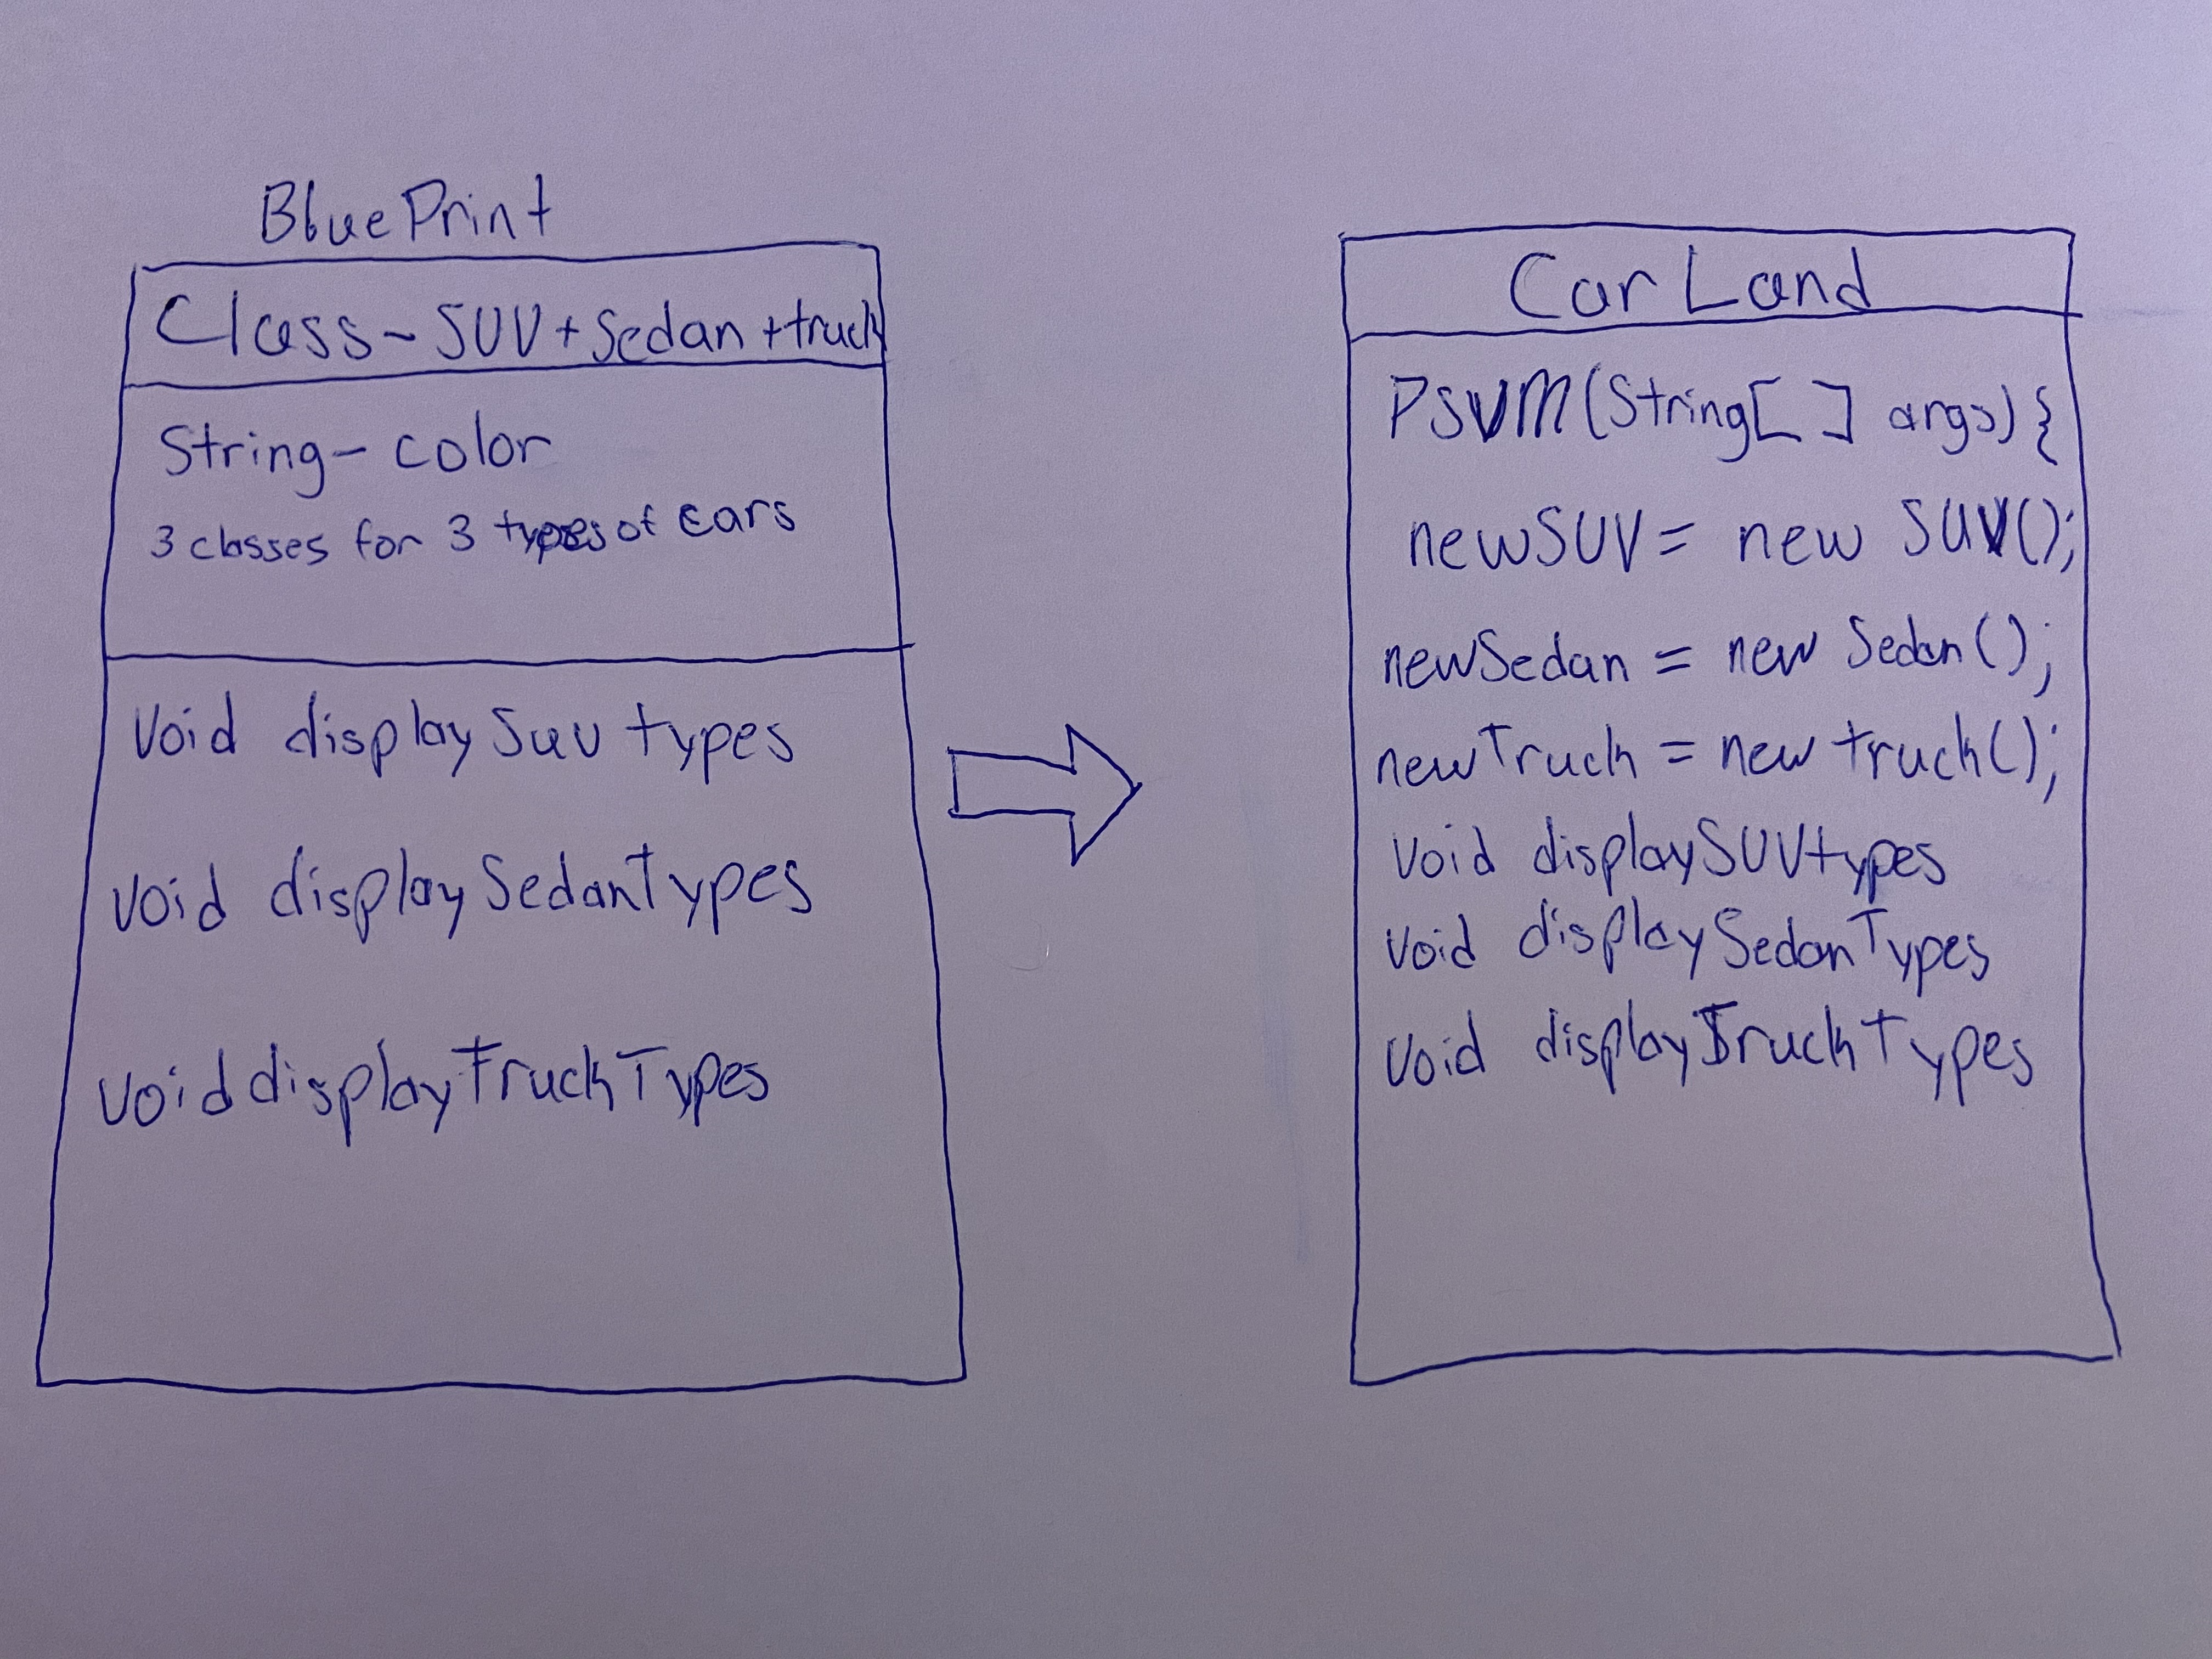 BluePrint
Class - SUV + Sedan + truck
String - color
3 classes for 3 types of cars
Void display Suv types
Void display SedanTypes
Void displayTruckTypes
Car Land
PSVM(String[] args){
newSUV = new SUV();
newSedan = new Sedan();
newTruck = new truck();
Void displaySUVtypes
Void displaySedanTypes
Void displayTruckTypes